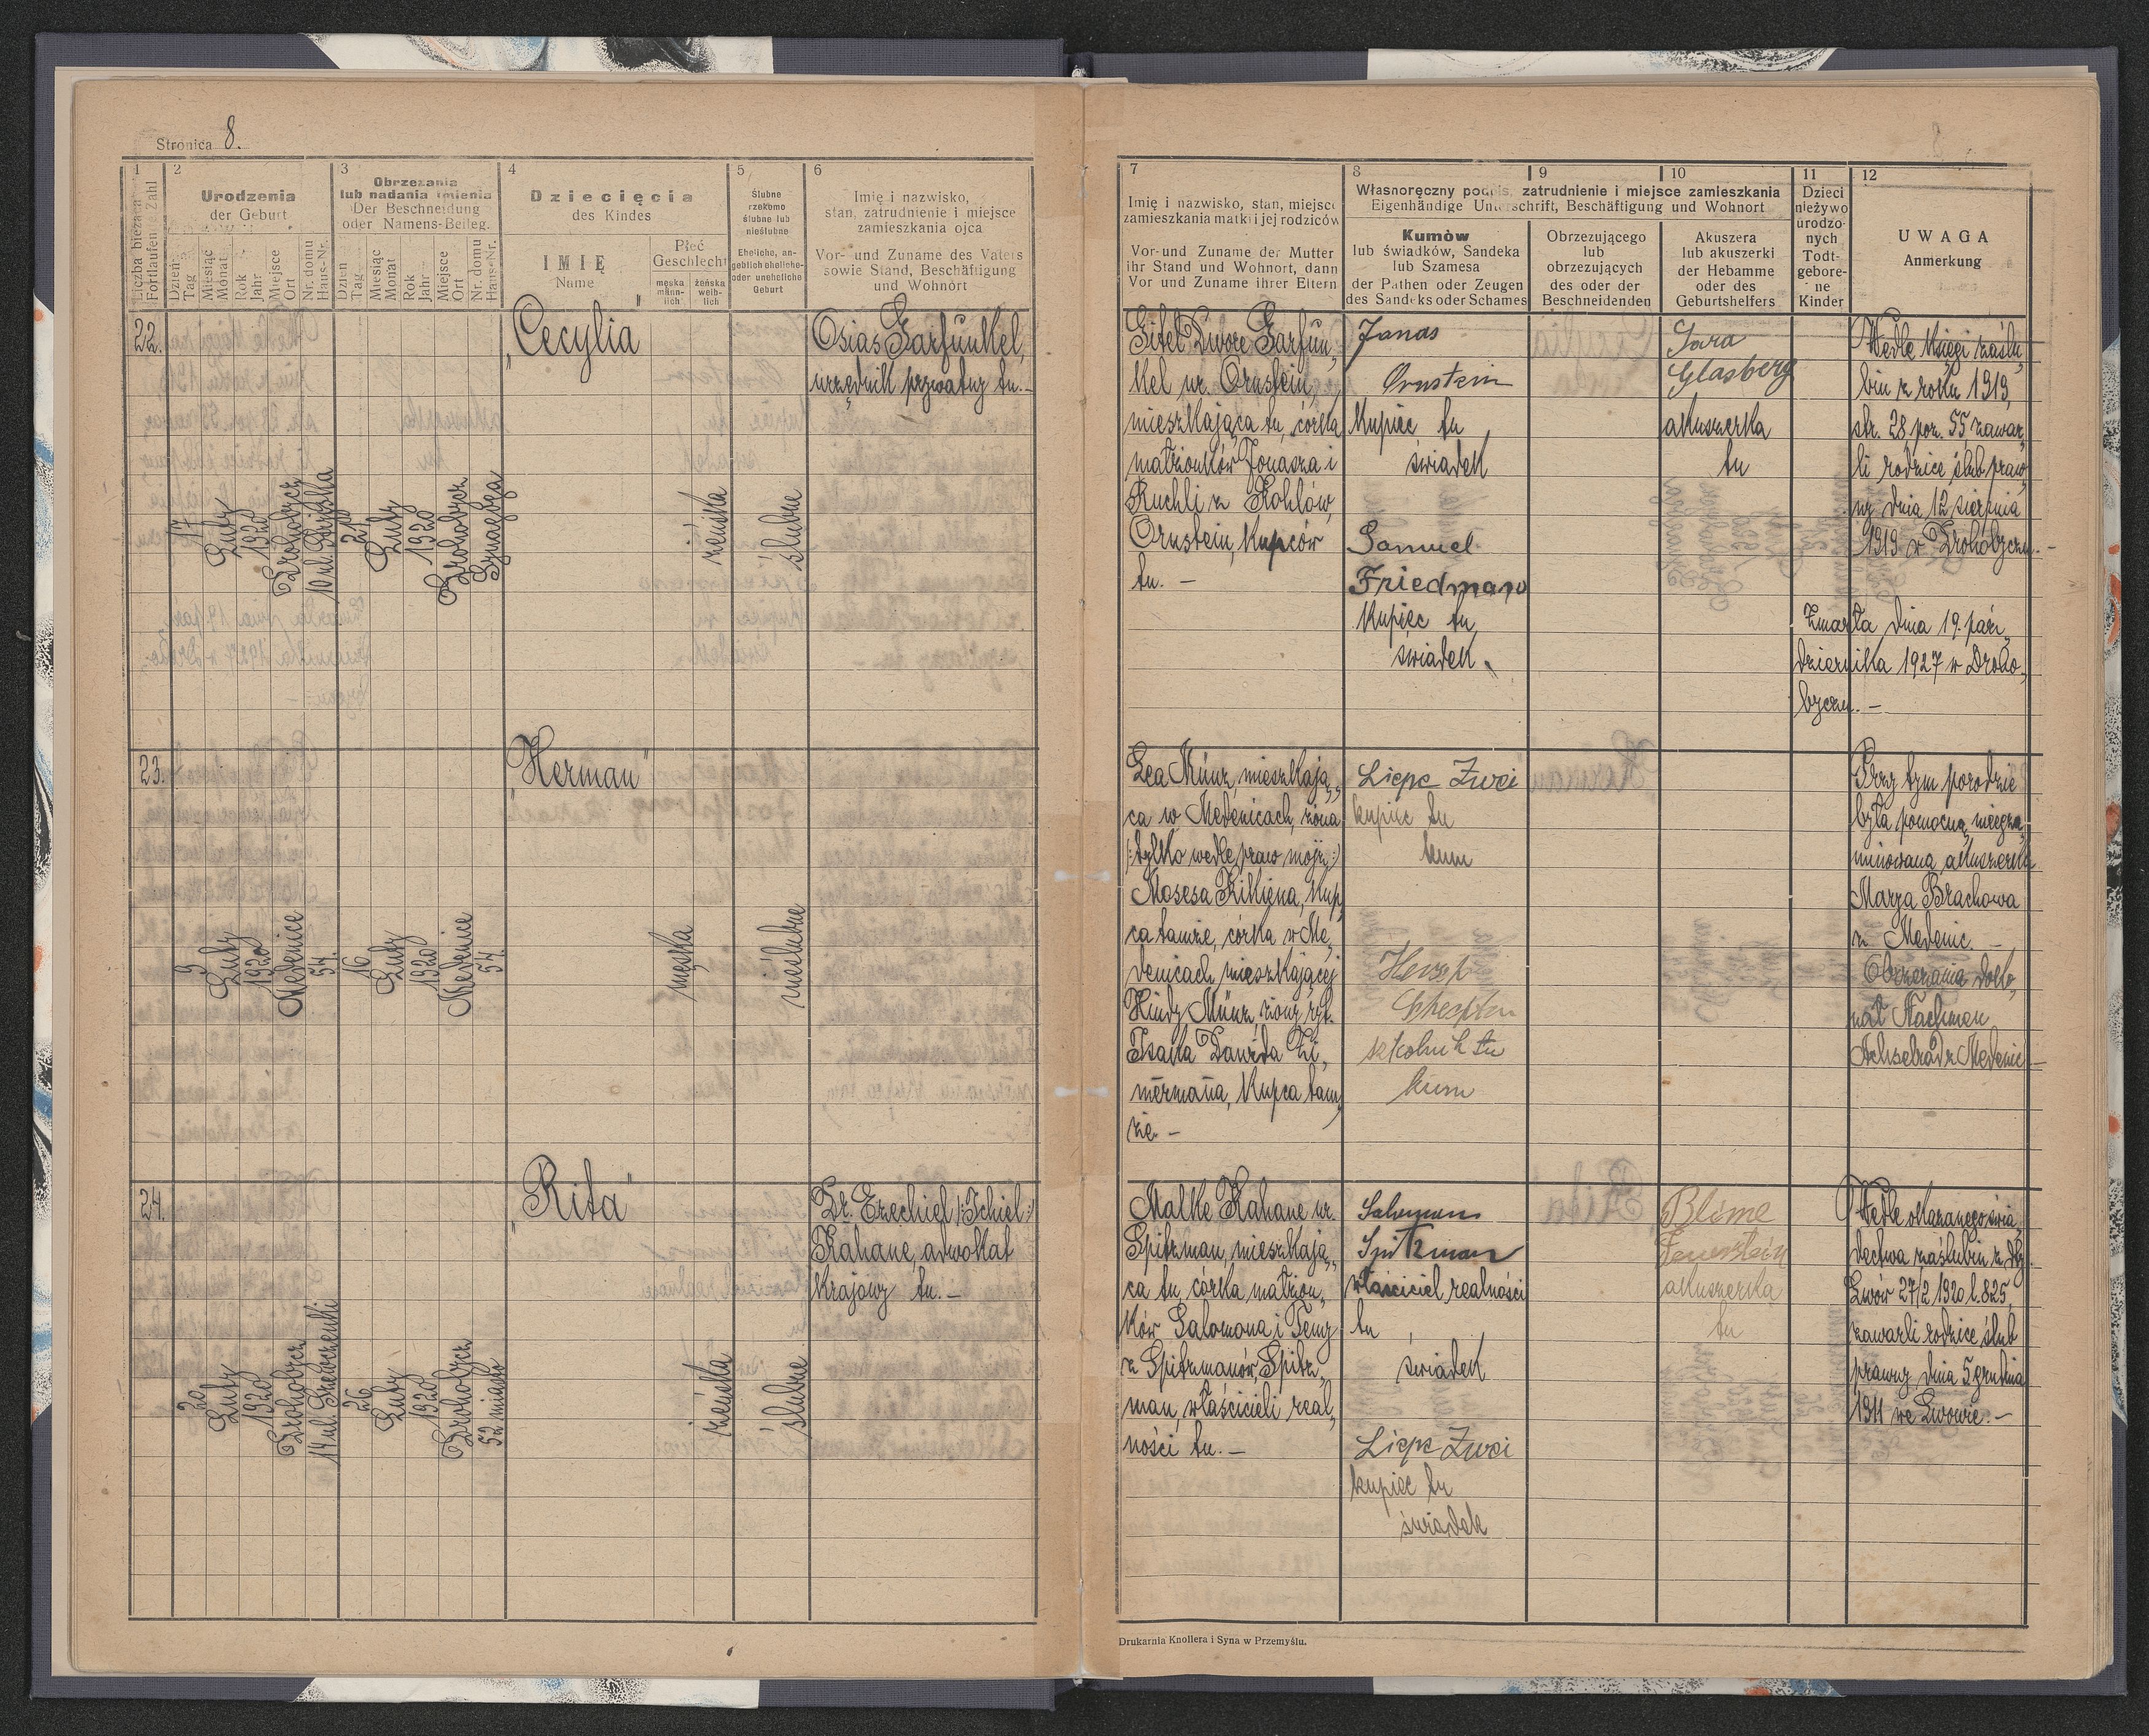 Stronica 8.
1
Liczba bieżąca
Fortlaufende Zahl
2
Urodzenia
der Geburt
Dzień
Tag
Miesiąc
Monat
Rok
Jahr
Miejsce
Ort
Nr. domu
Haus-Nr.
3
Obrzezania
lub nadania imienia
Der Beschneidung
oder Namens-Beileg.
Dzień
Tag
Miesiąc
Monat
Rok
Jahr
Miejsce
Ort
Nr. domu
Haus-Nr.
4
Dziecięcia
des Kindes
IMIĘ
Name
Płeć
Geschlecht
męska
männ-
lich
żeńska
weib-
lich
5
Ślubne
rzekomo
ślubne lub
nieślubne
Eheliche, an-
geblich eheliche-
oder uneheliche
Geburt
6
Imię i nazwisko,
stan, zatrudnienie i miejsce
zamieszkania ojca
Vor- und Zuname des Vaters
sowie Stand, Beschäftigung
und Wohnort
22.
17
Luty
1920
Drohobycz
10 ul. Garbska
21
Luty
1920
Drohobycz
Synagoga
„Cecylia"
żeńska
ślubne
Osias Garfunkel,
urzędnik prywatny tu.-
23.
9
Luty
1920
Medenice
54.
16
Luty
1920
Medenice
54.
„Herman"
męska
nieślubne
24.
20
Luty
1920
Drohobycz
14 ul. Szewczenki
26
Luty
1920
Drohobycz
52 miasto
„Rita"
żeńska
ślubne
Dr. Ezechiel /:Ichiel:/
Kahane, adwokat
krajowy tu.-
7
Imię i nazwisko, stan, miejsce
zamieszkania matki i jej rodziców
Vor-und Zuname der Mutter
ihr Stand und Wohnort, dann
Vor und Zuname ihrer Eltern
8
9
10
Własnoręczny podpis, zatrudnienie i miejsce zamieszkania
Eigenhändige Unterschrift, Beschäftigung und Wohnort
Kumów
lub świadków, Sandeka
lub Szamesa
der Pathen oder Zeugen
des Sandeks oder Schames
Obrzezującego
lub
obrzezujących
des oder der
Beschneidenden
Akuszera
lub akuszerki
der Hebamme
oder des
Geburtshelfers
11
Dzieci
nieżywo
urodzo-
nych
Todt-
gebore-
ne
Kinder
12
UWAGA
Anmerkung
Gitel Dwore Garfun„
kel ur. Ornstein,
mieszkająca tu, córka
małżonków Jonasza i
Ruchli z Kohlów,
Ornstein, kupców
tu. -
Jonas
Ornstein
kupiec tu
świadek
Samuel
Friedmann
kupiec tu
świadek
Sara
Glasberg
akuszerka
tu
Wedle księgi zaślu„
bin z roku 1919,
str. 28 poz. 55 zawar„
li rodzice ślub praw„
ny dnia 12 sierpnia
1919 w Drohobyczu.-
Zmarła dnia 19. paź„
dziernika 1927 w Droho„
byczu. -
Lea Münz, mieszkają„
ca w Medenicach, żona
/:tylko wedle praw mojż.:/
Mosesa Kikiena, kup„
ca tamże, córka w Me„
denicach mieszkającej
Hindy Münz, żony ryt.
Isaka Dawida Zi„
mermana, kupca tam„
że. -
Liepe Zwei
kupiec tu
kum
Hersz
szkolnik tu
kum
Przy tym porodzie
była pomocną nieegza„
minowana akuszerka
Marya Brachowa
z Medenic. -
Obrzezania doko„
nał Nachman
Achselrad z Medenic -
Malke Kahane ur.
Spitzman, mieszkają„
ca tu, córka małżon„
ków Salomona i Temy
z Spitzmanów, Spitz„
man, właścicieli real„
ności tu. -
Salomon
Spitzman
właściciel realności
tu
świadek
Liepe Zwei
kupiec tu
świadek
Blime
Feuerstein
akuszerka
tu
Wedle okazanego świa„
dectwa zaślubin z dty.
Lwów 27/2 1920 l. 825,
zawarli rodzice ślub
prawny dnia 5 grudnia
1911 we Lwowie. -
Drukarnia Knollera i Syna w Przemyślu.